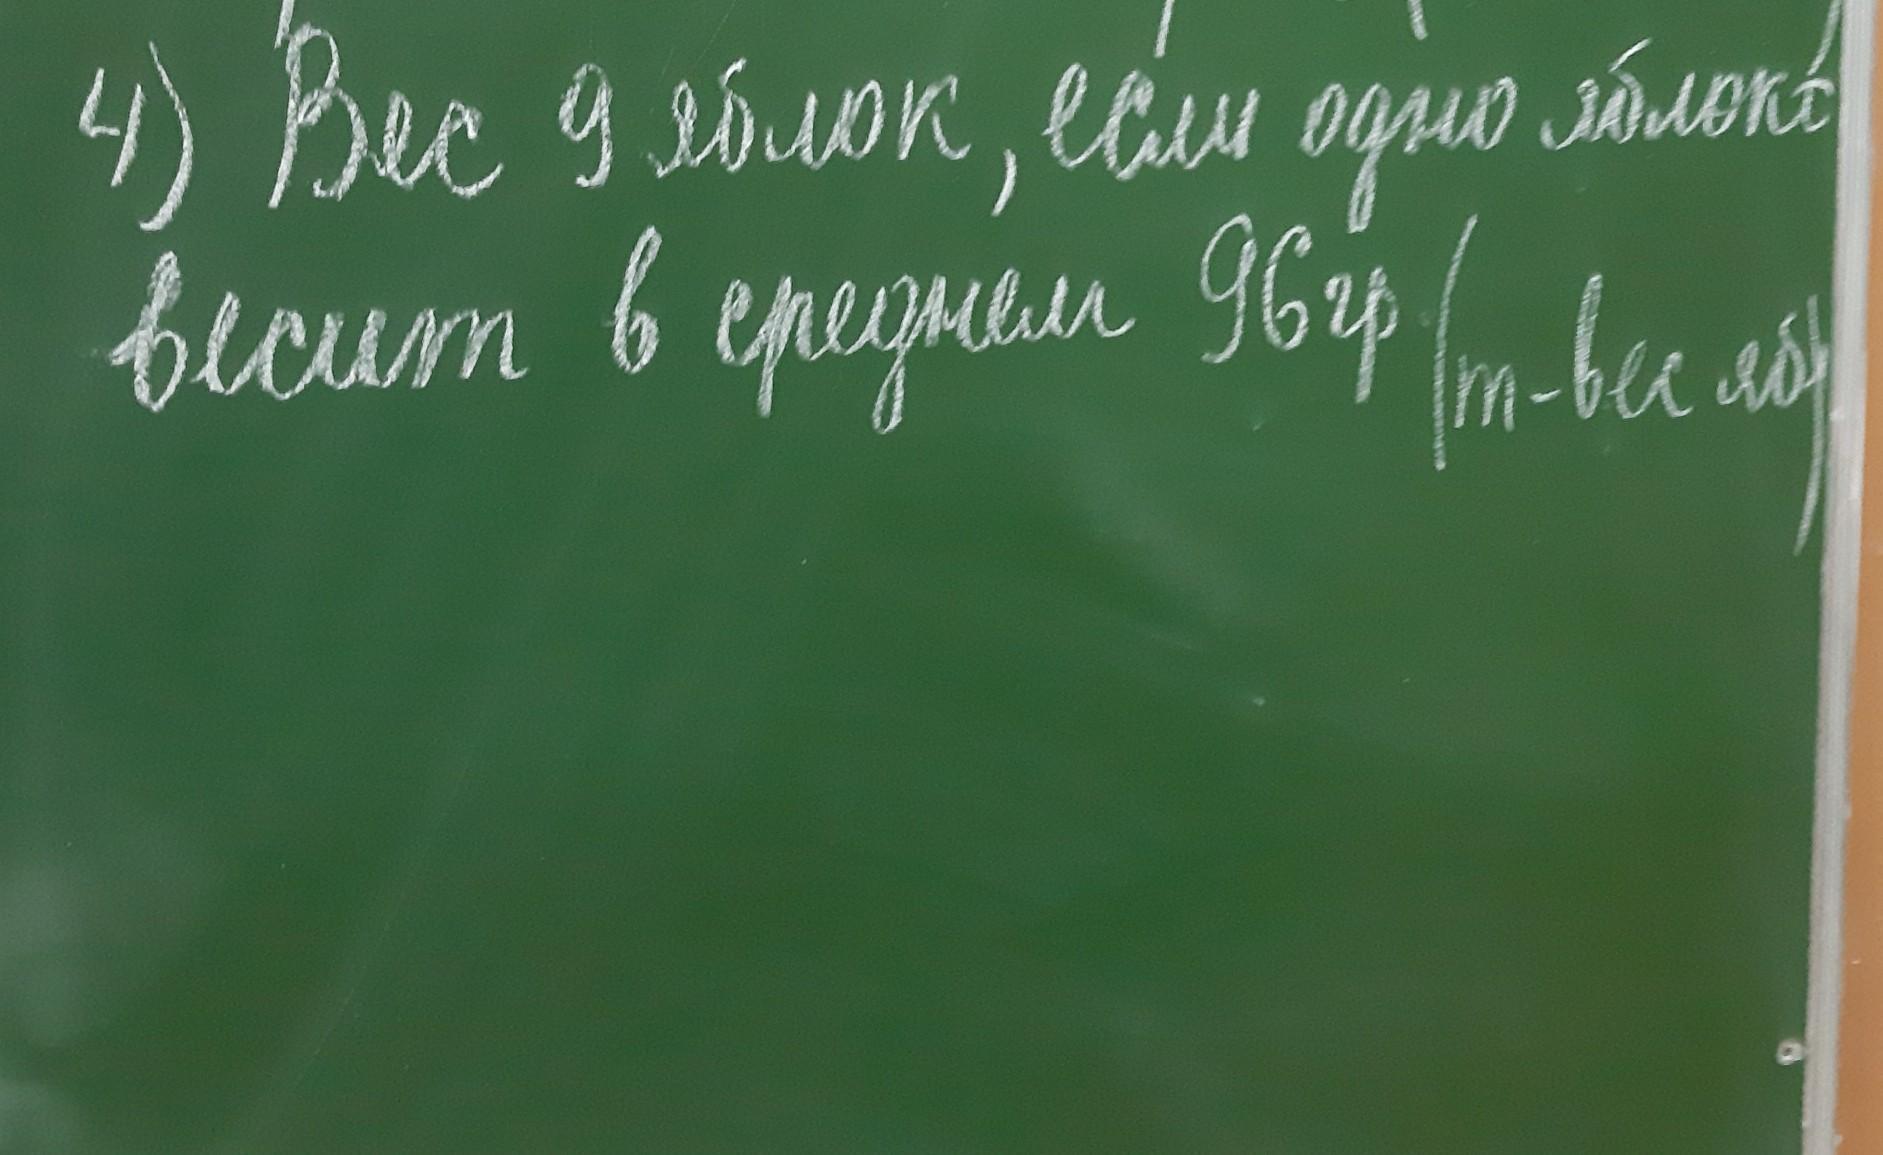 4) Вес 9 яблок, если одно яблоко
весит в среднем 96 гр (m-вес яб)